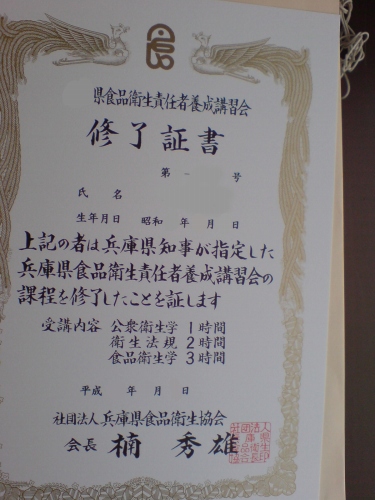 県食品衛生責任者養成講習会
修了証書
第 - 号
氏名
生年月日 昭和 年 月 日
上記の者は兵庫県知事が指定した
兵庫県食品衛生責任者養成講習会の
課程を修了したことを証します
受講内容 公衆衛生学 1時間
衛生法規 2時間
食品衛生学 3時間
平成 年 月 日
社団法人 兵庫県食品衛生協会
会長 楠 秀雄